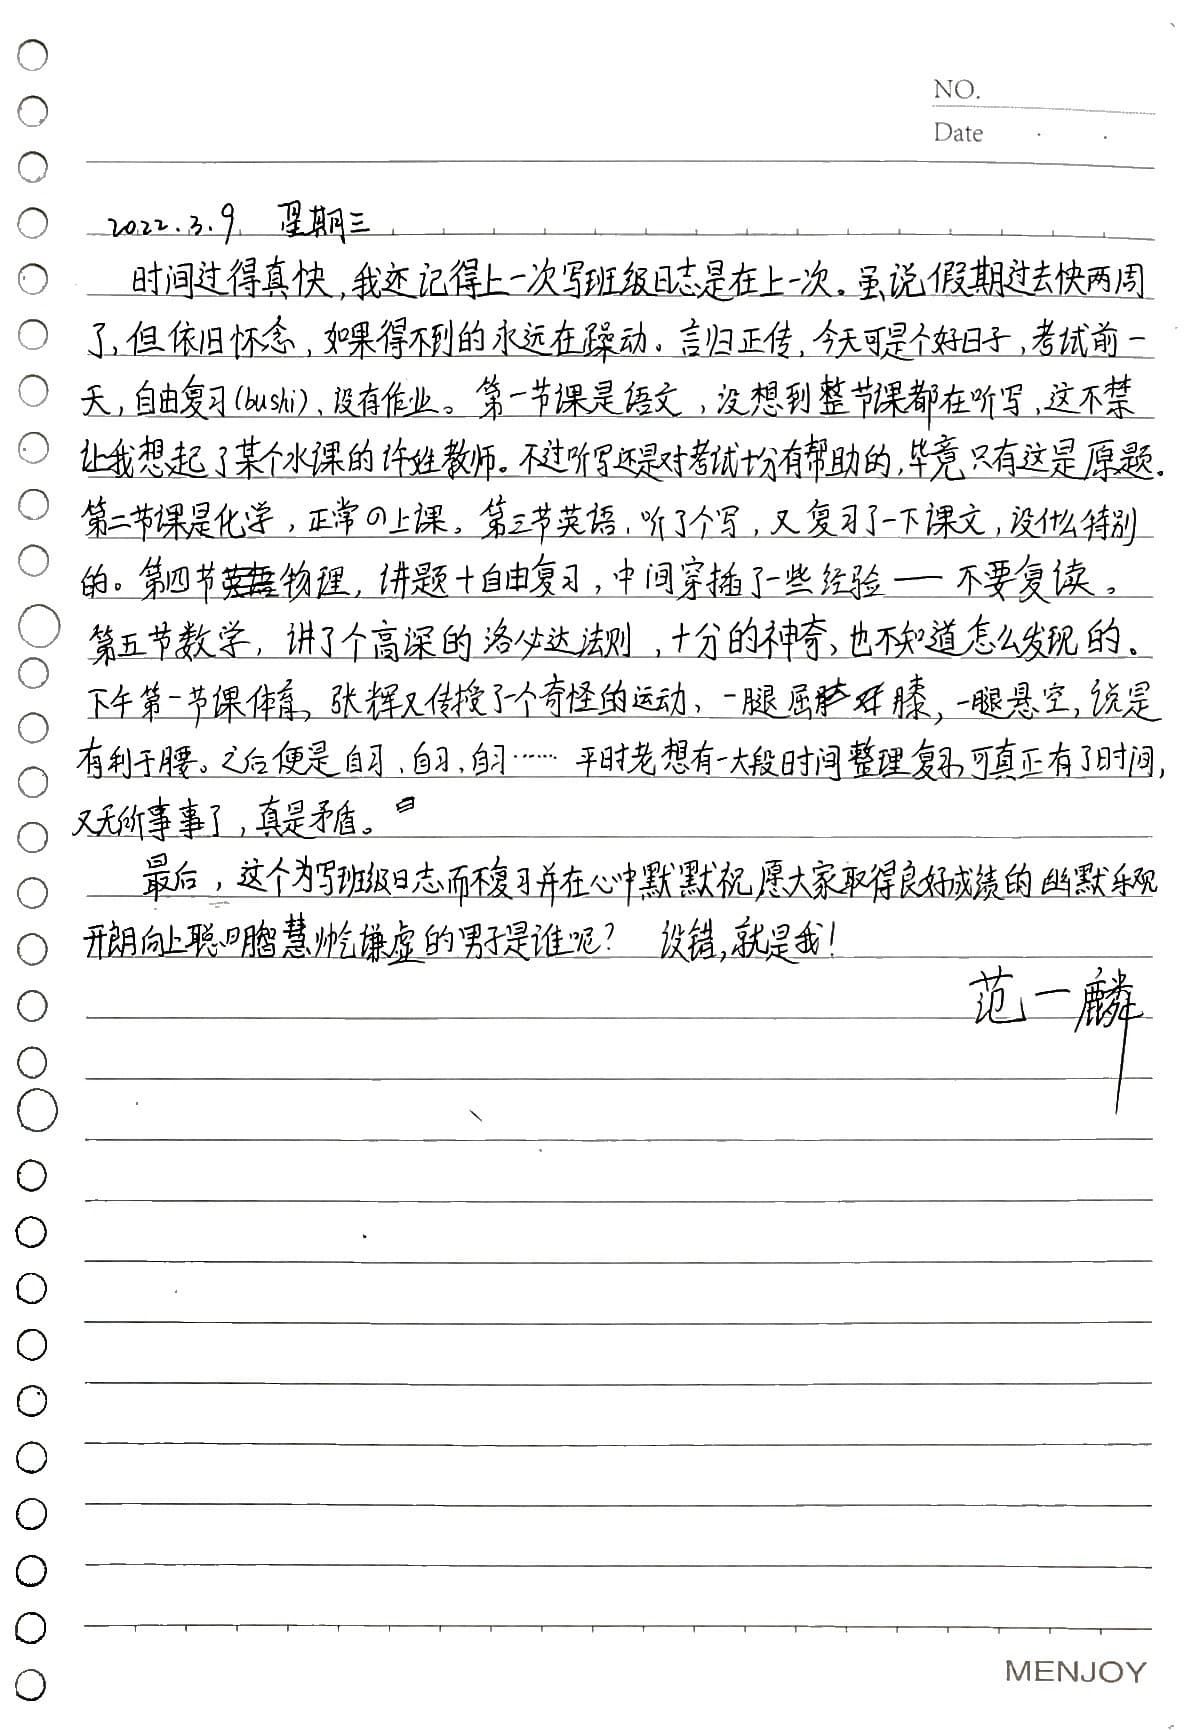 NO.
Date
2022.3.9 星期三
时间过得真快,我还记得上一次写班级日志是在上一次。虽说假期过去快两周
了,但依旧怀念,如果得不到的永远在躁动。言归正传,今天可是个好日子,考试前一
天,自由复习(bushi)、没有作业。第一节课是语文,没想到整节课都在听写,这不禁
让我想起了某个水课的许姓教师。不过听写还是对考试十分有帮助的,毕竟只有这是原题。
第二节课是化学,正常の上课。第三节英语,听了个写,又复习了一下课文,没什么特别
的。第四节物理,讲题+自由复习,中间穿插了一些经验——不要复读。
第五节数学,讲了个高深的洛必达法则,十分的神奇,也不知道怎么发现的。
下午第一节课体育,张辉又传授了一个奇怪的运动、一腿屈膝,一腿悬空,说是
有利于腰。之后便是自习、自习、自习……平时老想有一大段时间整理复习,可真正有了时间,
又无所事事了,真是矛盾。
最后,这个为写班级日志而不复习并在心中默默祝愿大家取得良好成绩的幽默乐观
开朗向上聪明智慧帅气谦虚的男子是谁呢? 没错,就是我!
范一麟
MENJOY